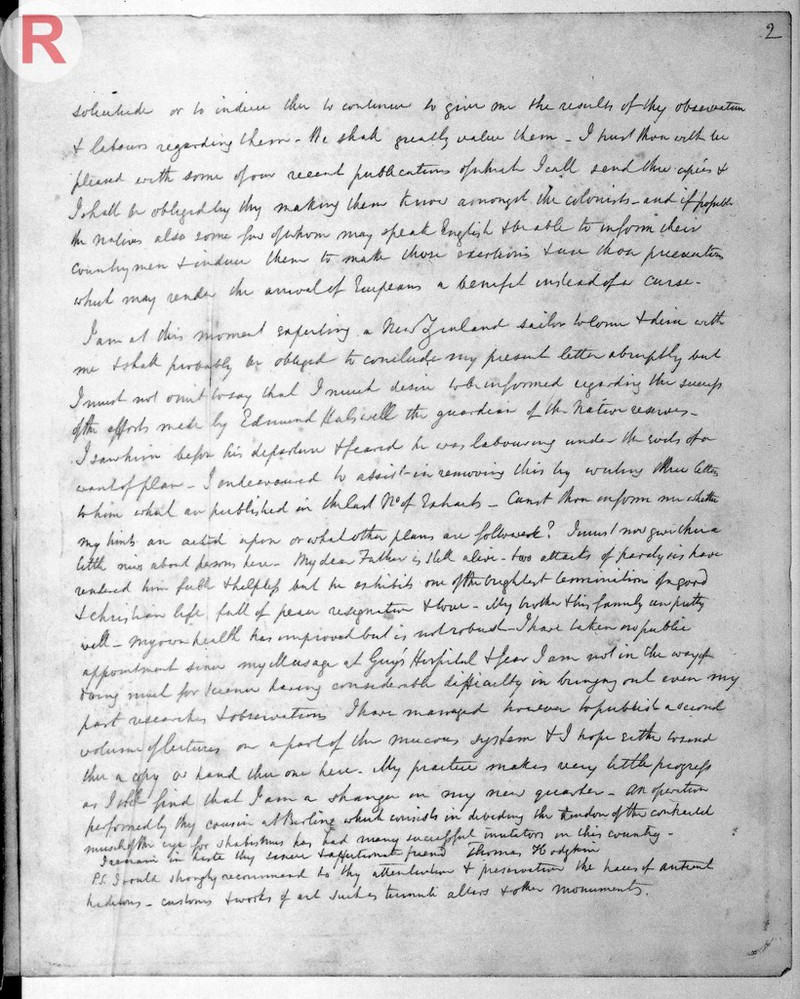 R
2
solicitude or to induce thee to continue to give me the results of thy observation
& labours regarding them - We shall greatly value them - I trust thou wilt be
pleased with some of our recent publications of which I will send thee copies &
I shall be obliged by thy making them know amongst the colonists - and if possible
the natives also some few of whom may speak English & be able to inform their
countrymen & induce them to make those exertions & use those precautions
which may render the arrival of Europeans a benefit instead of a curse -
I am at this moment expecting a New Zealand sailor to come & dine with
me & shall probably be obliged to conclude my present letter abruptly but
I must not omit to say that I much desire to be informed regarding the success
of the efforts made by Edmund Halswell the guardian of the Native reserves -
I saw him before his departure & feared he was labouring under the evils of a
want of plan - I endeavoured to assist in removing this by writing three letters
to him what are published in the last No of Extracts - Canst thou inform me whether
my hints are acted upon or what other plans are followed? I must now give thee a
little news about persons here - My dear Father is still alive - two attacks of paralysis have
rendered him feeble & helpless but he exhibits one of the brightest termination of a good
& christian life full of peace resignation & love - My brother & his family are pretty
well - my own health has improved but is not robust - I have taken no public
appointment since my at Guy's Hospital & fear I am not in the way of
doing much for science having considerable difficulty in bringing out even my
past researches & observations I have managed however to publish a second
volume of lectures on a part of the mucous system & I hope either to send
thee a copy or hand thee one here - My practice makes very little progress
as I still find that I am a stranger in my new quarter - An operation
performed by thy cousin at Berlin which consists in dividing the tendon of the contracted
muscle of the eye for strabismus has had many successful imitators in this country -
I remain in haste thy sincere & affectionate friend Thomas Hodgkin
P.S. I would strongly recommend to thy attention & preservation the traces of antient
traditions - customs & works of art such as tumuli altars & other monuments.